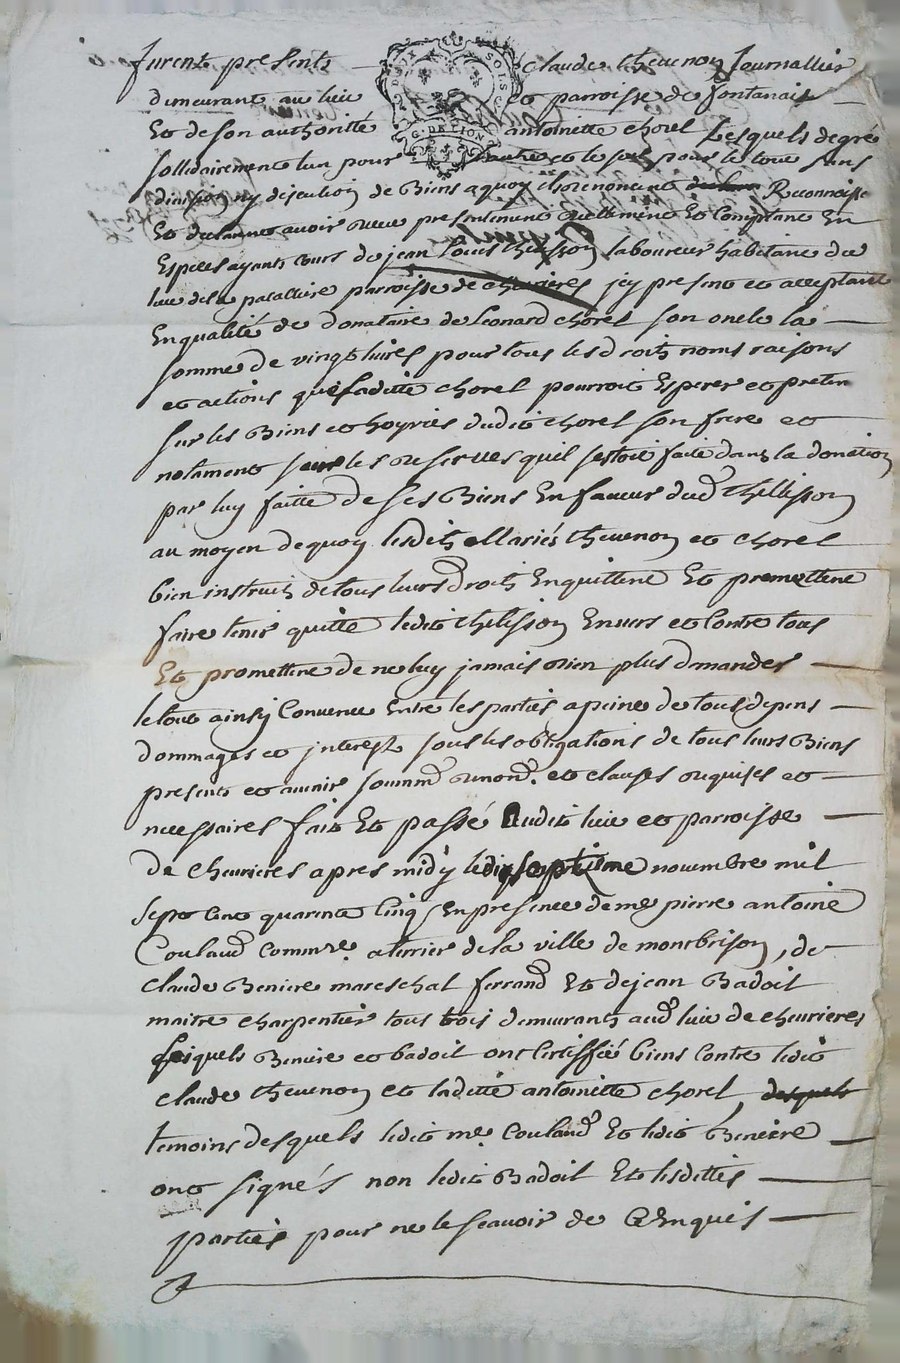 furent presents claude thevenon Journallier
demeurant au lieu et parroisse de fontanais
Et de son authorité antoinette chorel Lesquels de gré
sollidairement lun pour lautre et le seul pour le tout sans
division ny discution de Biens a quoy ils renoncent Reconnoisse
Et declarent avoir receu presentement reellement Et Comptant En
Especes ayants cours de jean louis thelisson laboureur habitant du
lieu de la paralliere parroisse de chevrieres jcy present et acceptant
En qualité de donataire de Leonard chorel son oncle la
somme de vingt livres pour tous les droits noms raisons
et actions que laditte chorel pourroit Esperer et preten
sur les Biens et hoyries dudit chorel son frere et
notament sur les reserves quil sestoit faitte dans la donation
par luy faitte de ses Biens En faveur dud thellisson
au moyen de quoy lesdits Mariés thevenon et chorel
bien instruits de tous leurs droits En quittent Et promettent
faire tenir quitte ledit thelisson Envers et Contre tous
Et promettent de ne luy jamais rien plus demander
le tout ainsy Convenu Entre les parties a peine de tous depens
dommages et jnterest sous les obligations de tous leurs Biens
presents et avenir soummd renond. et clauses requises et
necessaires fait Et passé Audit lieu et parroisse
de chevrieres apres midy le dix septieme novembre mil
sept cent quarente Cinq En presence de me pierre antoine
Couland commre. a terrier de la ville de montbrison, de
claude Beniere mareschal ferrand Et de jean Badoil
maitre charpentier tous trois demeurants aud lieu de chevrieres
lesquels Beniere et badoil ont Certiffié biens Contre ledit
claude thevenon et laditte antoinette chorel, desquels
temoins desquels ledit me Couland Et ledit Beniere
ont signés non ledit Badoil Et lesdittes
parties pour ne le scavoir de ce Enquis